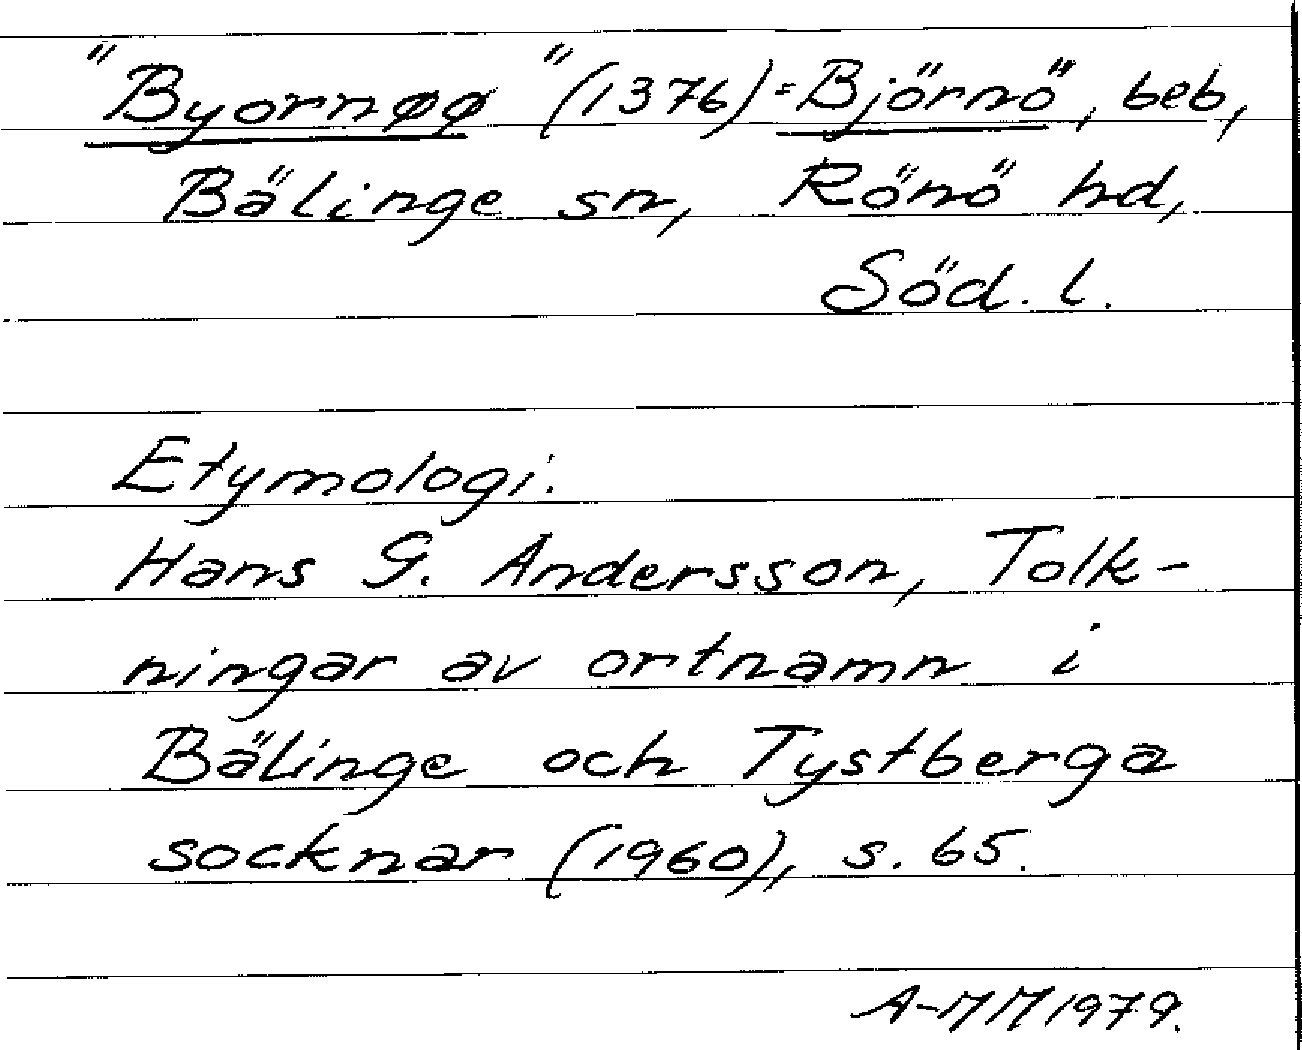 "Byornøø" (1376) = Björnö, beb,
Bälinge sn, Rönö hd,
Söd. l.
Etymologi:
Hans G. Andersson, Tolk-
ningar av ortnamn i
Bälinge och Tystberga
socknar (1960), s. 65.
A-MM 1979.